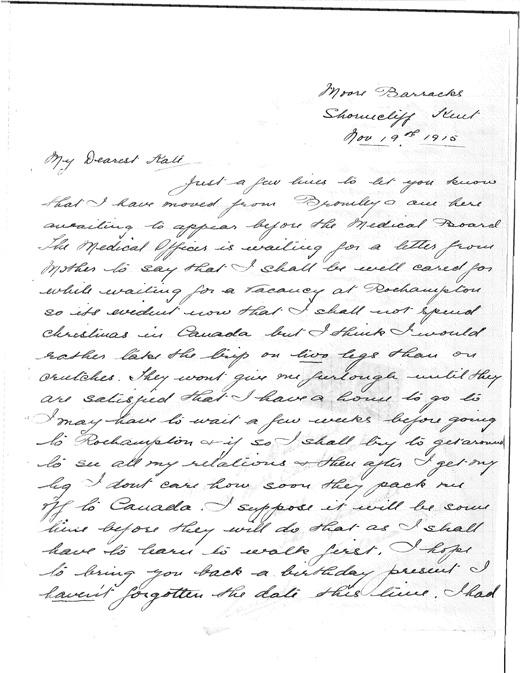 Moore Barracks
Shorncliff Kent
Nov 19th 1915
My Dearest Kate
Just a few lines to let you know
that I have moved from Bromley & am here
awaiting to appear before the Medical Board
The Medical Officer is waiting for a letter from
Mother to say that I shall be well cared for
while waiting for a vacancy at Rochampton
so its evident now that I shall not spend
christmas in Canada but I think I would
rather take the trip on two legs than on
crutches. They wont give me furlough until they
are satisfied that I have a home to go to
I may have to wait a few weeks before going
to Rochampton & if so I shall try to get around
to see all my relations & then after I get my
leg I dont care how soon they pack me
off to Canada. I suppose it will be some
time before they will do that as I shall
have to learn to walk first. I hope
to bring you back a birthday present I
haven't forgotten the date this time. I had